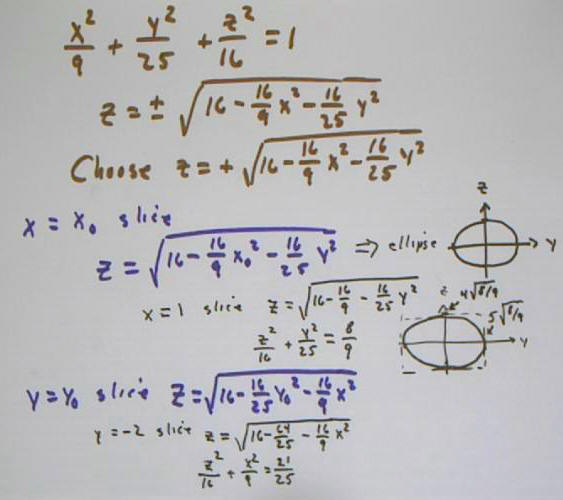 x²/9 + y²/25 + z²/16 = 1
z = ± √(16 - 16/9 x² - 16/25 y²)
Choose z = + √(16 - 16/9 x² - 16/25 y²)
x = x₀ slice
z = √(16 - 16/9 x₀² - 16/25 y²) ⇒ ellipse
z
y
x = 1 slice z = √(16 - 16/9 - 16/25 y²)
z²/16 + y²/25 = 8/9
z
4√8/9
5√8/9
y
y = y₀ slice z = √(16 - 16/25 y₀² - 16/9 x²)
y = -2 slice z = √(16 - 64/25 - 16/9 x²)
z²/16 + x²/9 = 21/25